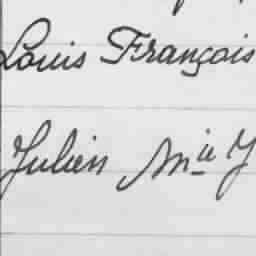 Louis François
Julien Mie J